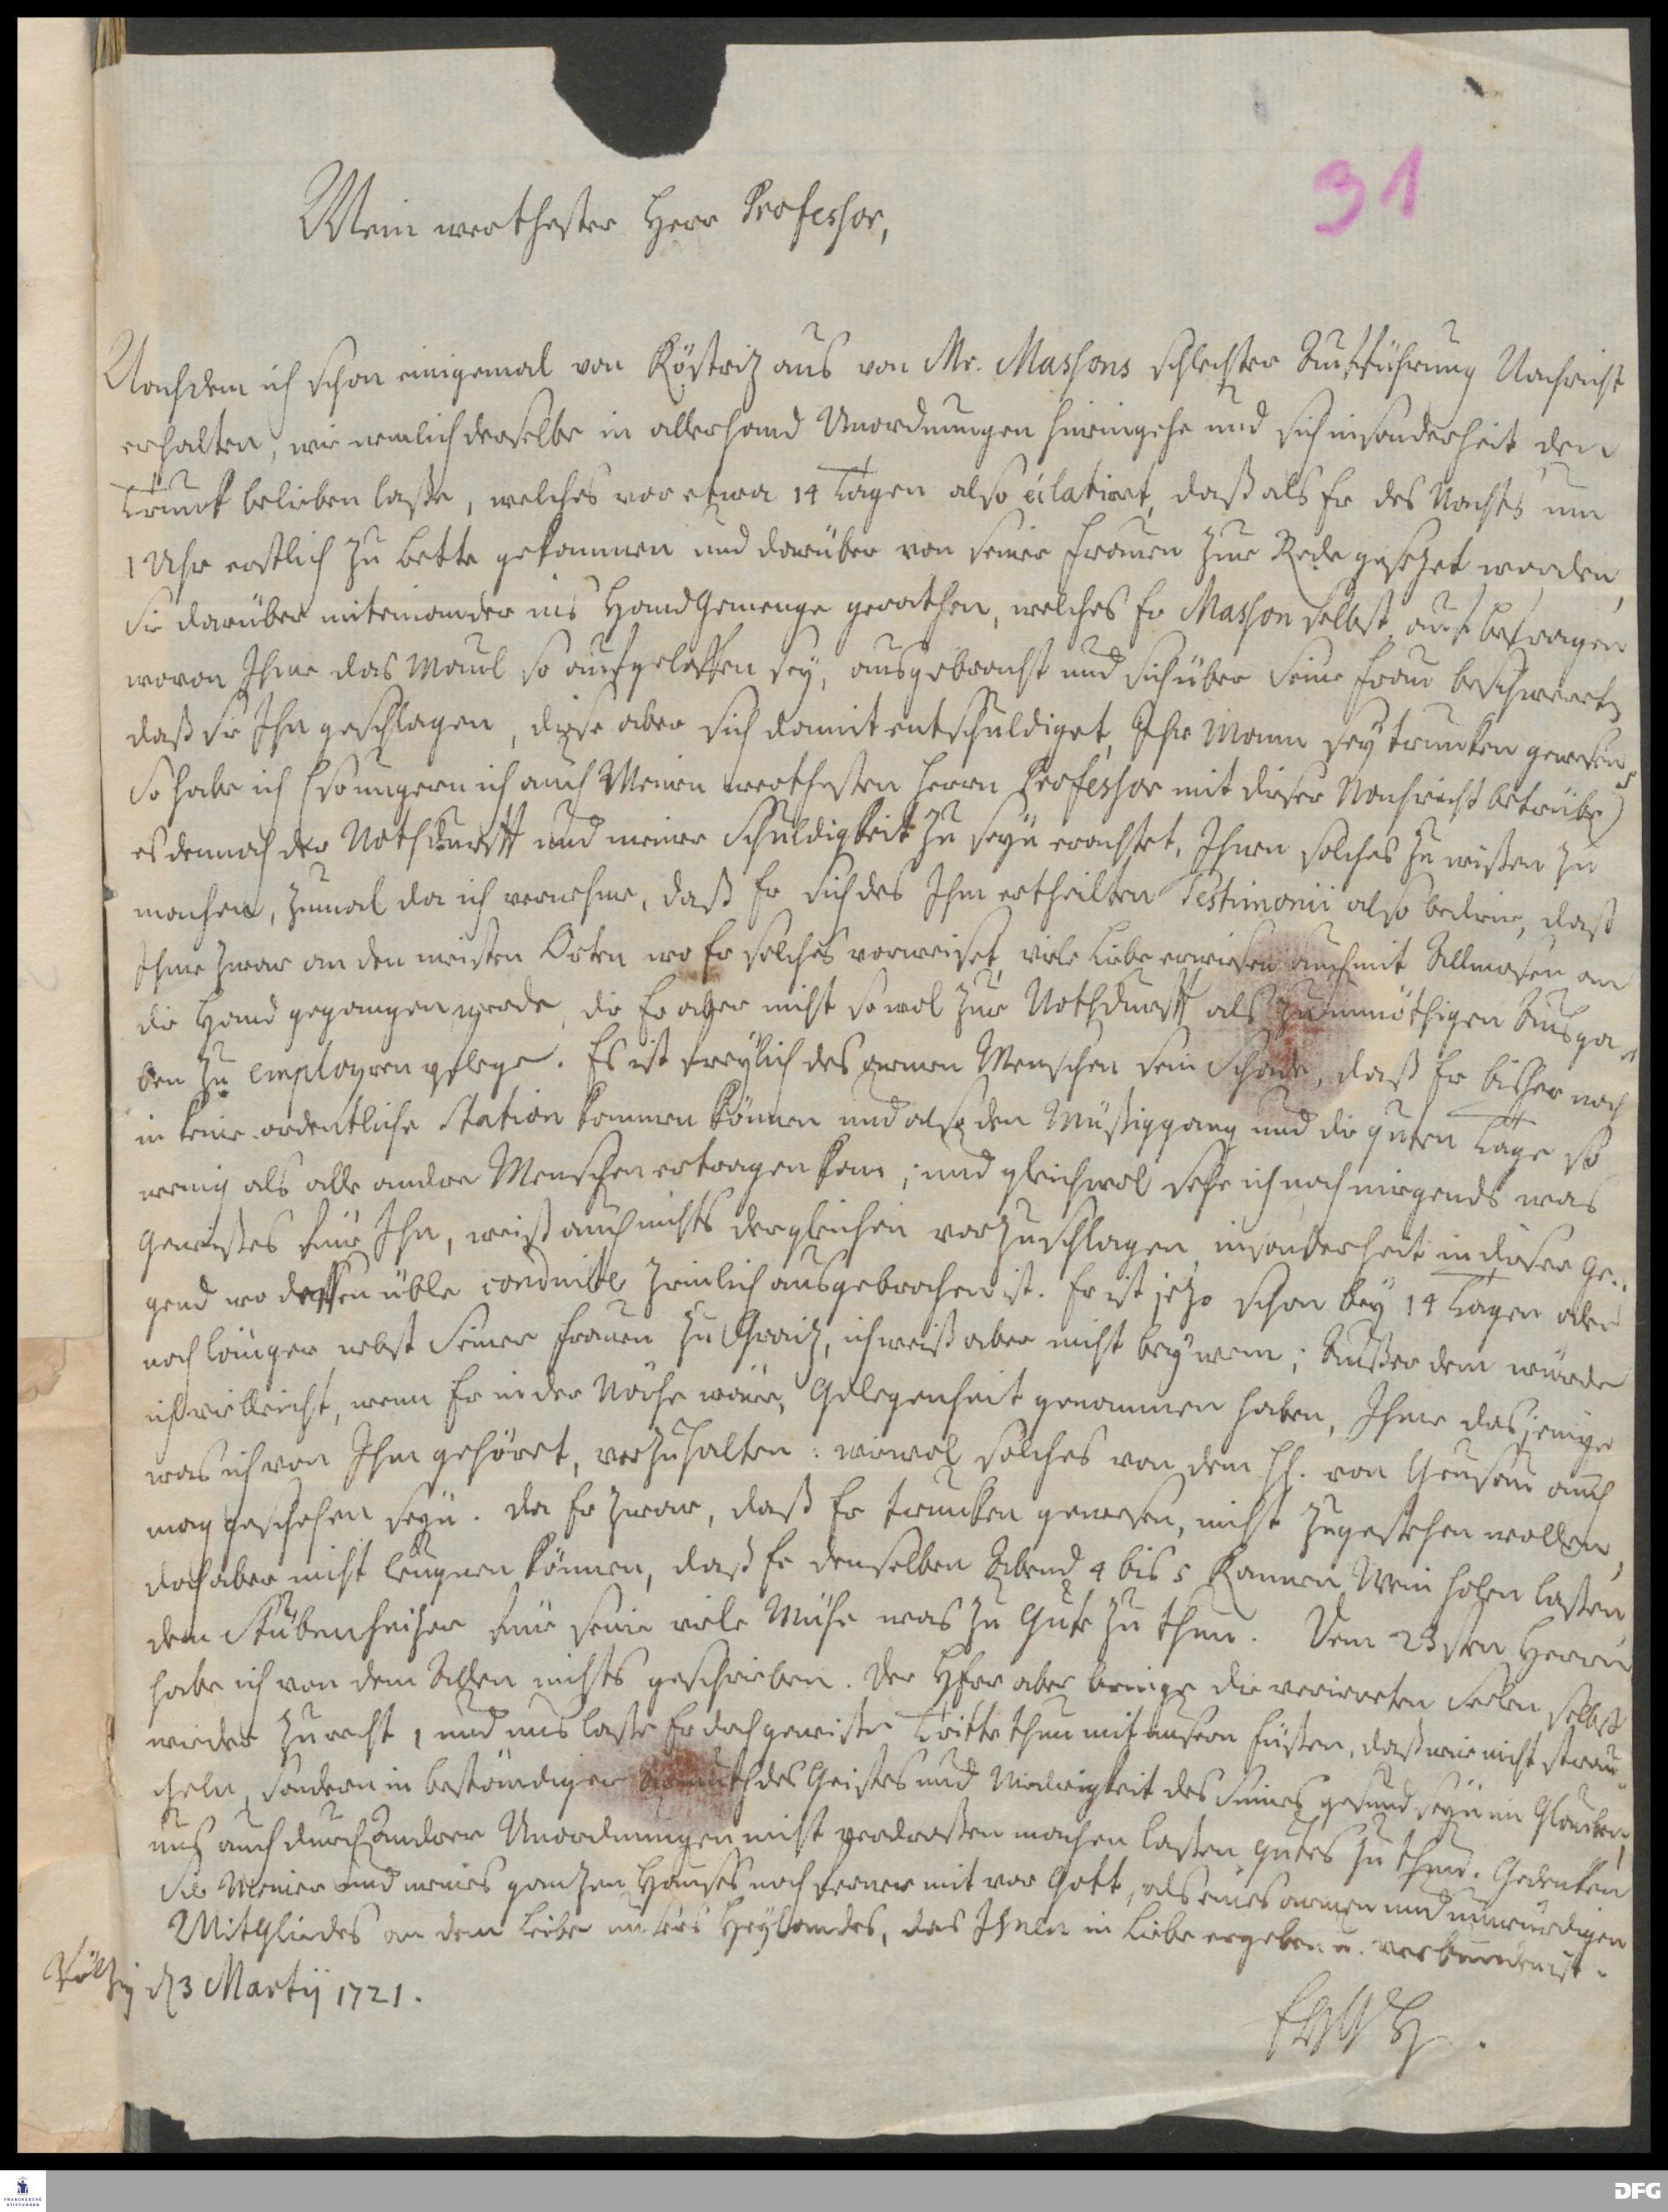 91
Mein werthester Herr Professor,
Nachdem ich schon einigemal von Köstriz aus von Mr. Massons schlechter Aufführung Nachricht
erhalten, wie nemlich derselbe in allerhand Unordnungen hineingehe und sich insonderheit den
Trunck belieben laße, welches vor etwa 14 Tagen also éclatiret, daß als Er des Nachts um
1 Uhr erstlich zu bette gekommen und darüber von seiner Frauen zur Rede gesezet worden,
Sie darüber miteinander ins HandGemenge gerathen, welches Er Masson selbst, auf befragen
wovon Ihme das Maul so aufgeloffen sey, ausgebracht und sich über Seine Frau beschwert,
daß sie Ihn geschlagen, diese aber sich damit entschuldiget, Ihr Mann sey truncken gewesen,
So habe ich (so ungern ich auch Meinen werthesten Herrn Professor mit dieser Nachricht betrübe)
es dennoch der Nothdurfft und meiner Schuldigkeit zu seyn erachtet, Ihnen solches zu wißen zu
machen, zumal da ich vernehme, daß Er sich des Ihm ertheilten Testimonii also bedien, daß
Ihme zwar an den meisten Orten wo Er solches vorweiset, viele Liebe erwiesen auch mit Allmosen an
die Hand gegangen werde, die Er aber nicht so wol zur Nothdurfft als zu unnöthigen Ausga-
ben zu employren pflege. Es ist freylich des armen Menschen sein Schade, daß Er bisher noch
in keine ordentliche Station kommen können und also den Müßiggang und die guten Tage so
wenig als alle andre Menschen ertragen kan; und gleichwol sehe ich noch nirgends was
gewißes für Ihn, weiß auch nichts dergleichen vorzuschlagen, insonderheit in dieser Ge-
gend wo dessen üble conduite zimlich ausgebrochen ist. Er ist jezo schon bey 14 Tagen oder
noch länger nebst Seiner Frauen zu Graiz, ich weiß aber nicht bey wem; Außer dem würde
ich vielleicht, wenn Er in der Nähe wäre, Gelegenheit genommen haben, Ihme dasjenige
was ich von Ihm gehöret, vorzuhalten: wiewol solches von dem H. von Geusau auch
mag geschehen seyn. da Er zwar, daß Er truncken gewesen, nicht zugestehen wollen,
doch aber nicht leugnen können, daß Er denselben Abend 4 bis 5 Kannen Wein holen laßen,
dem Stubenheizer für seine viele Mühe was zu Gute zu thun. Dem 23sten Herrn
habe ich von dem Allen nichts geschrieben. Der HErr aber bringe die verirrten Seelen selbst
wieder zu recht, und uns laße Er doch gewiße Tritte thun mit unsern Füßen, daß wir nicht strau-
cheln, sondern in beständiger Armuth des Geistes und Niedrigkeit des Sinnes gesund seyn im Glauben,
uns auch durch andrer Unordnungen nicht verdroßen machen laßen gutes zu thun. Gedencken
Sie Meiner und meines ganzen Hauses noch ferner mit vor Gott, als eines armen und unwürdigen
Mitgliedes an dem Leibe unsers Heylandes, das Ihnen in Liebe ergeben u. verbunden ist.
d 3 Martij 1721.
DFG